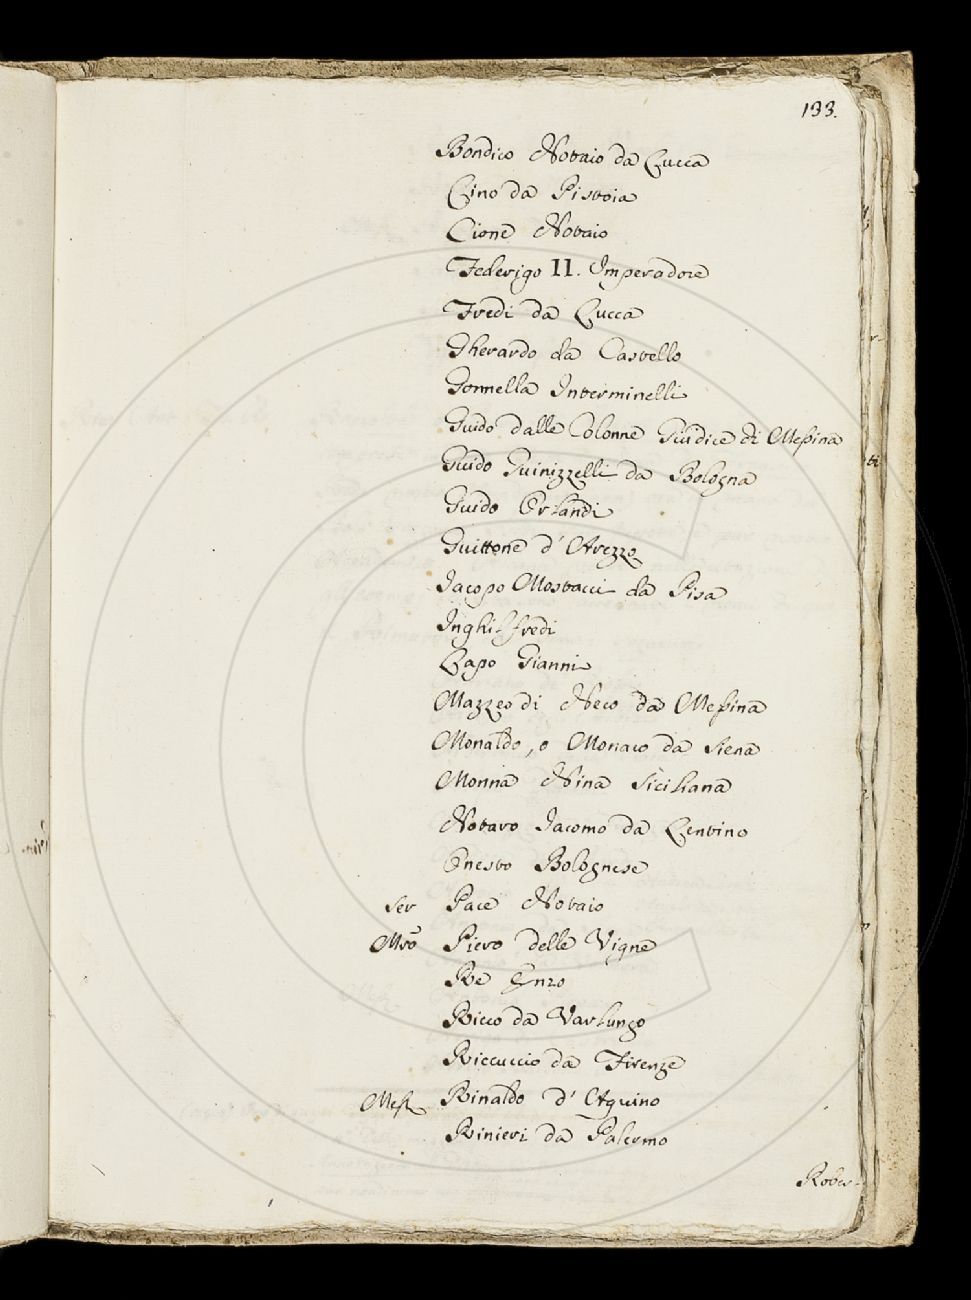 133.
Bondico Notaio da Lucca
Cino da Pistoia
Cione Notaio
Federigo II. Imperadore
Fredi da Lucca
Gherardo da Castello
Gonnella Interminelli
Guido dalle Colonne Giudice di Meßina
Guido Guinizzelli da Bologna
Guido Orlandi
Guittone d' Arezzo
Jacopo Mostacci da Pisa
Inghilfredi
Lapo Gianni
Mazzeo di Reco da Meßina
Monaldo, o Monaco da Siena
Monna Nina Siciliana
Notaro Jacomo da Lentino
Onesto Bolognese
Ser Pace Notaio
Mro Piero delle Vigne
Re Enzo
Ricco da Varlungo
Riccuccio da Firenze
Meß. Rinaldo d' Aquino
Rinieri da Palermo
Rober-